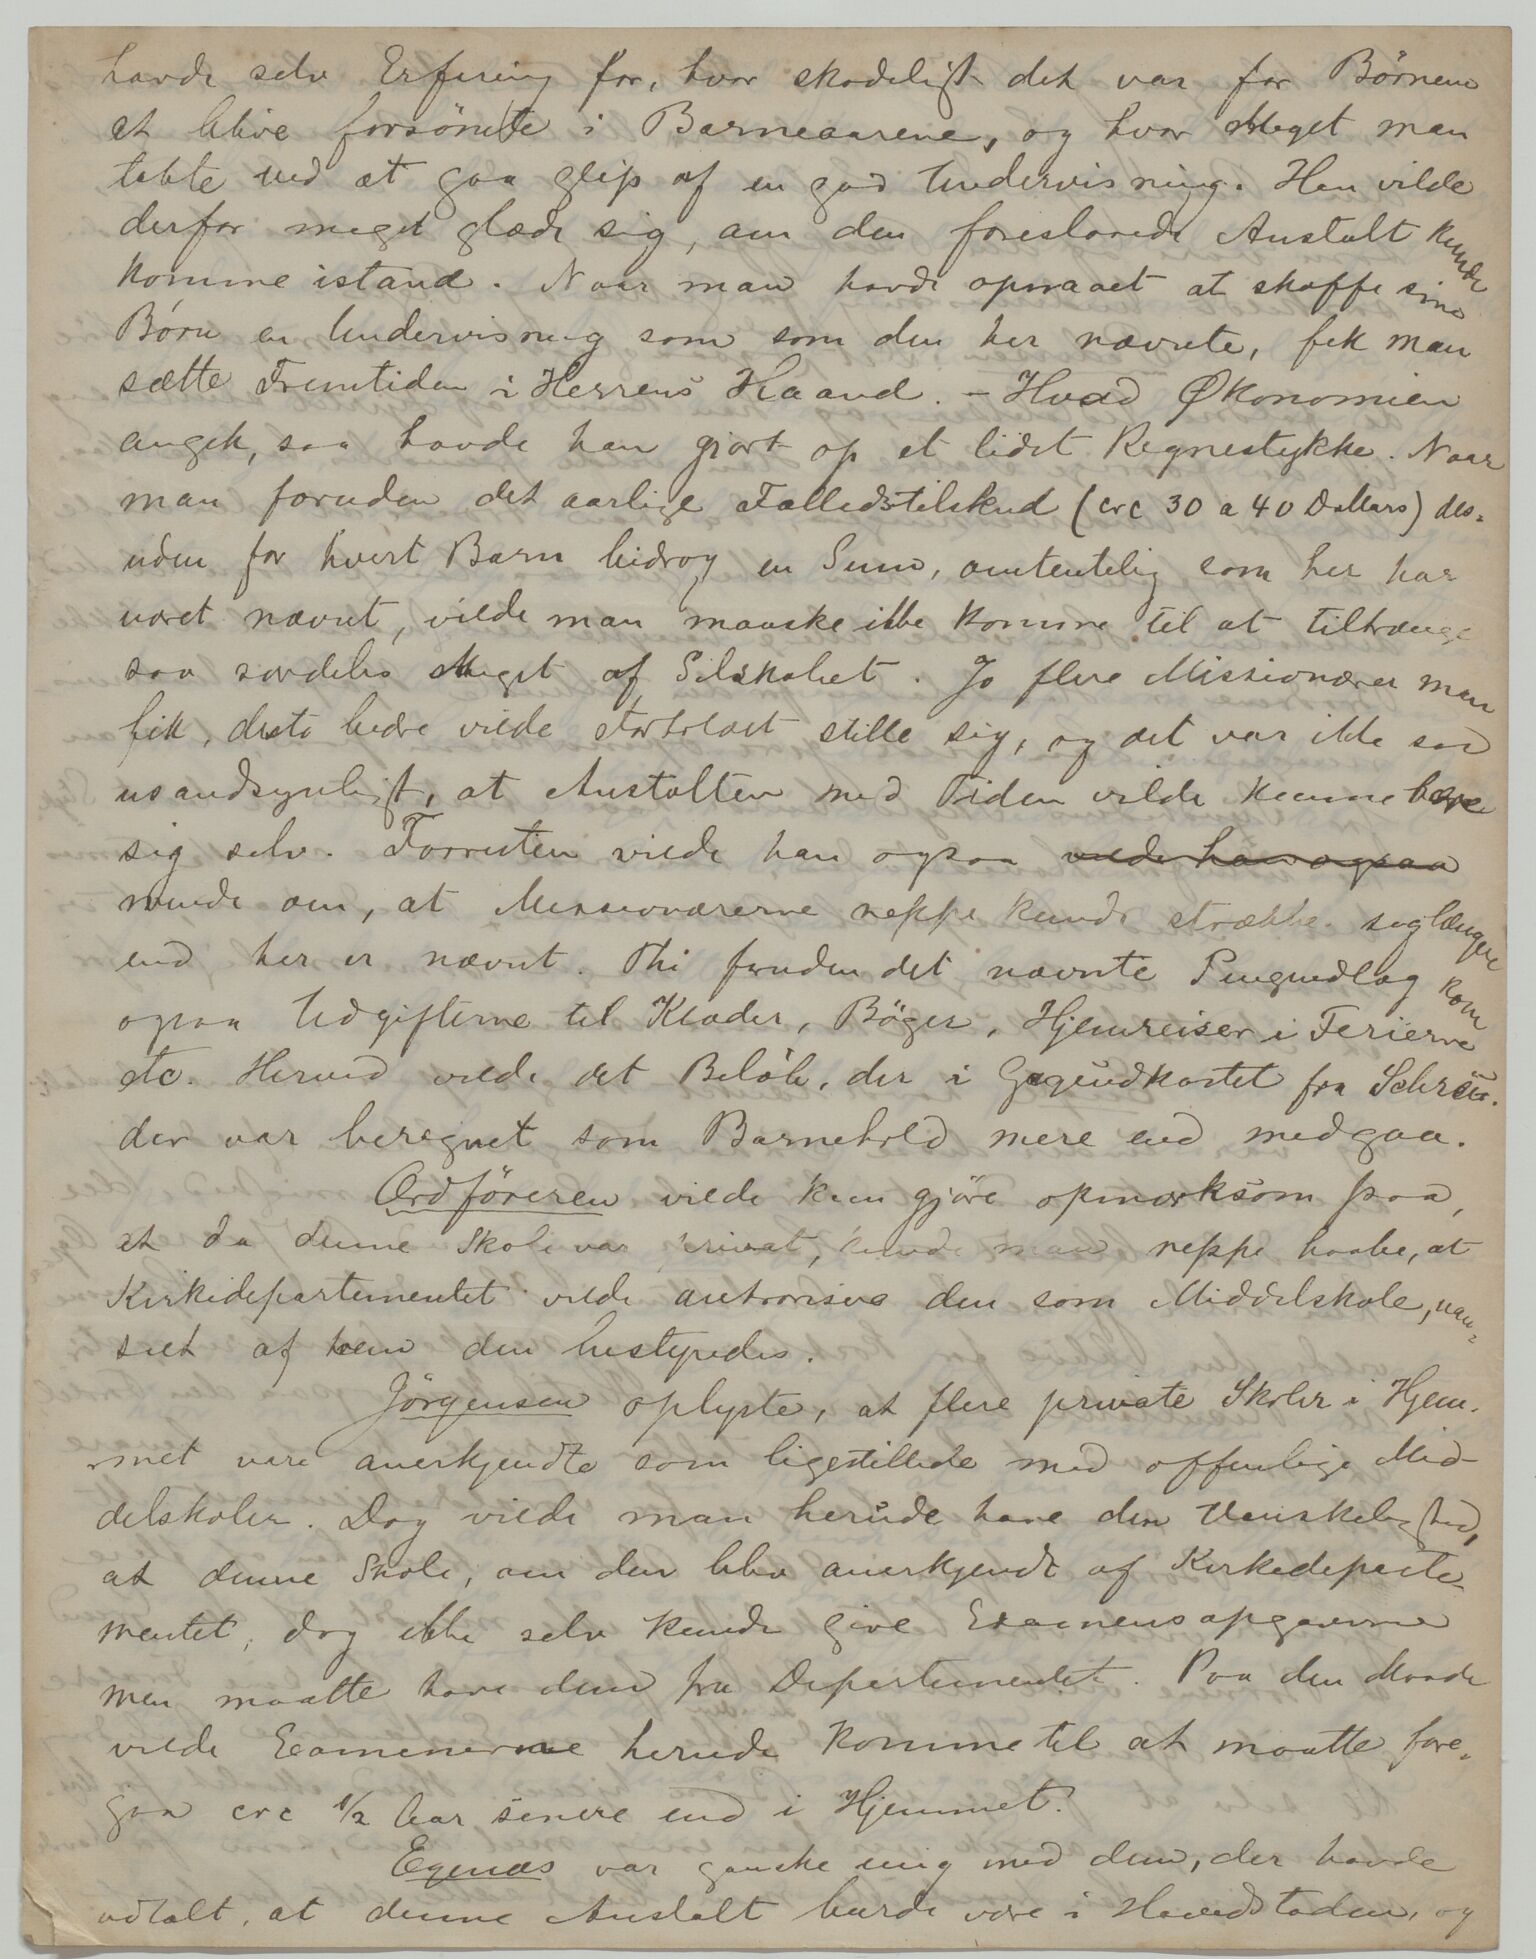 havde selv Erfaring for, hvor skadeligt det var for Børnene
at blive forsömte i Barneaarene, og hvor Meget man
tabte ved at gaa glip af en god Undervisning. Han vilde
derfor meget glæde sig, om den foreslaaede Anstalt kunde
komme istand. Naar man havde opnaaet at skaffe sine
Børn en Undervisning som som den her nævnte, fik man
sætte Fremtiden i Herrens Haand. - Hvad Økonomien
angik, saa havde han gjort op et lidet Regnestykke. Naar
man foruden det aarlige Fælledstilskud (crc 30 a 40 Dollars) des-
uden for hvert Barn bidrog en Sum, omtentelig som her har
været nævnt, vilde man maaske ikke komme til at tiltrænge
saa særdeles Meget af Selskabet. Jo flere Missionærer man
fik, desto bedre vilde Forholdet stille sig, og det var ikke saa
usandsynligt, at Anstalten med Tiden vilde kunne bære
sig selv. Forresten vilde han ogsaa vilde han ogsaa
minde om, at Missionærerne neppe kunde strække sig længere
end her er nævnt. Thi foruden det nævnte Pengeudlæg kom
ogsaa Udgifterne til Klæder, Bøger, Hjemreiser i Ferierne
etc. Herved vilde det Beløb, der i Gageudkastet fra Schreu-
der var beregnet som Barnehold mere end medgaa.
Ordföreren vilde kun gjöre opmærksom paa,
at da denne Skole var privat, kunde man neppe haabe, at
Kirkedepartementet vilde autorisere den som Middelskole, uan-
seet af hvem den bestyredes.
Jörgensen oplyste, at flere private Skoler i Hjem-
met vare anerkjendte som ligestillede med offenlige Mid-
delskoler. Dog vilde man herude have den Vanskelighed,
at denne Skole, om den blev anerkjendt af Kirkedeparte-
mentet, dog ikke selv kunde give Examensopgaverne
men maatte have dem fra Departementet. Paa den Maade
vilde Examenerne herude komme til at maatte fore-
gaa crc 1/2 Aar senere end i Hjemmet.
Egenæs var ganske enig med dem, der havde
udtalt, at denne Anstalt burde være i Hovedstaden, og